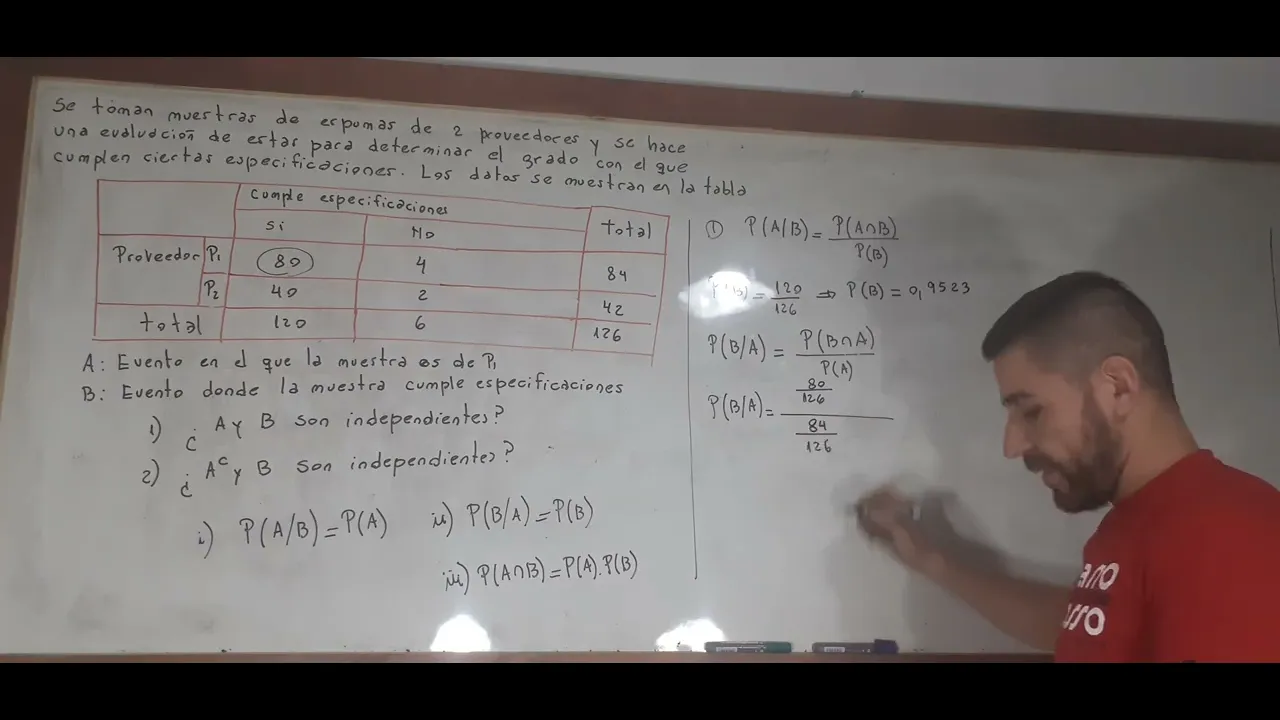 Se toman muestras de espumas de 2 proveedores y se hace
una evaluación de estas para determinar el grado con el que
cumplen ciertas especificaciones. Los datos se muestran en la tabla
Cumple especificaciones
Si No total
Proveedor P1 80 4 84
P2 40 2 42
total 120 6 126
A: Evento en el que la muestra es de P1
B: Evento donde la muestra cumple especificaciones
1) ¿ A y B son independientes?
2) ¿ A^c y B son independientes?
i) P(A/B)=P(A) ii) P(B/A)=P(B)
iii) P(A∩B)=P(A).P(B)
① P(A/B)= P(A∩B)/P(B)
P(B) = 120/126 ⇒ P(B) = 0,9523
P(B/A) = P(B∩A)/P(A)
P(B/A)= (80/126)/(84/126)